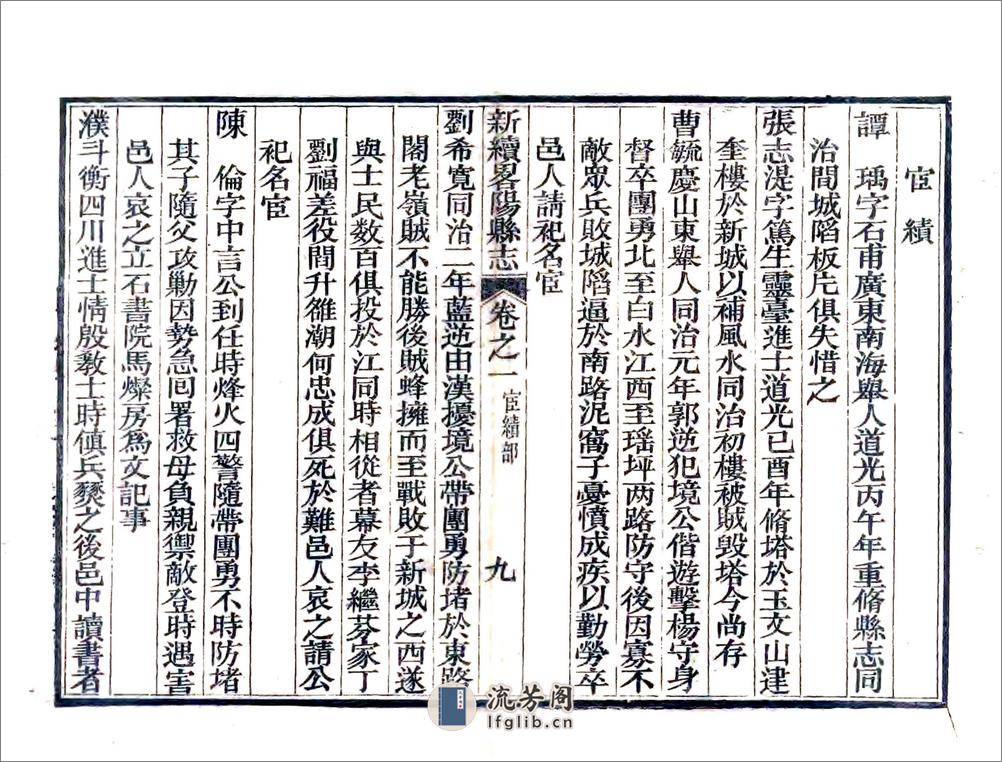 宦績
譚　瑀字石甫廣東南海舉人道光丙午年重脩縣志同
治間城陷板片俱失惜之
張志湜字篤生靈臺進士道光己酉年脩塔於玉文山建
奎樓於新城以補風水同治初樓被賊毀塔今尚存
曹毓慶山東舉人同治元年郭逆犯境公偕遊擊楊守身
督卒團勇北至白水江西至瑶坪两路防守後因寡不
敵眾兵敗城陷逼於南路泥窩子憂憤成疾以勤勞卒
邑人請祀名宦
新續畧陽縣志 卷之一 宦績部 九
劉希寬同治二年藍逆由漢擾境公帶團勇防堵於東路
閣老嶺賊不能勝後賊蜂擁而至戰敗于新城之西遂
與士民数百俱投於江同時相從者幕友李繼芬家丁
劉福差役閻升雒潮何忠成俱死於難邑人哀之請公
祀名宦
陳　倫字中言公到任時烽火四警隨帶團勇不時防堵
其子隨父攻勦因势急囘署救母負親禦敵登時遇害
邑人哀之立石書院馬燦房為文記事
濮斗衡四川進士情殷教士時值兵燹之後邑中讀書者
流芳阁
lfglib.cn